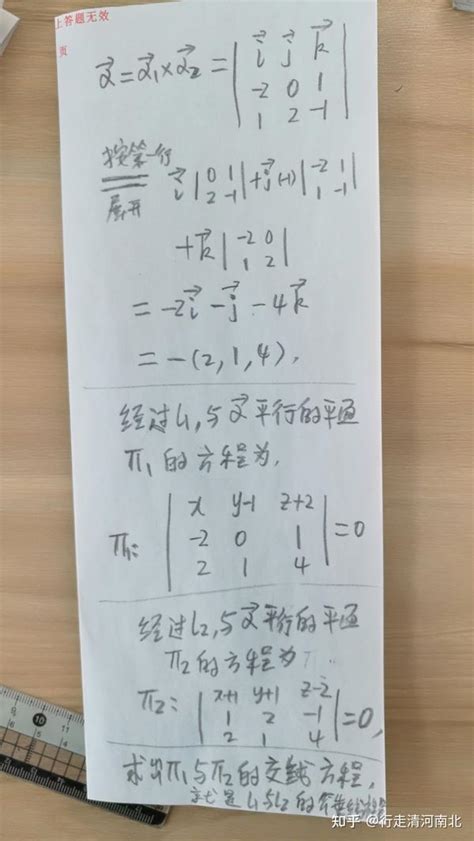 上答题无效
页
α⃗=α⃗₁×α⃗₂ = | i⃗ j⃗ k⃗ |
| -2 0 1 |
| 1 2 -1 |
按第一行
展开
i⃗ | 0 1 | + j⃗(-1) | -2 1 |
| 2 -1 | | 1 -1 |
+ k⃗ | -2 0 |
| 1 2 |
= -2i⃗ - j⃗ - 4k⃗
= -(2,1,4).
经过L1,与α⃗平行的平面
π1的方程为,
π1: | x y-1 z+2 |
| -2 0 1 | =0
| 2 1 4 |
经过L2,与α⃗平行的平面
π2的方程为
π2: | x+1 y+1 z-2 |
| 1 2 -1 | =0,
| 2 1 4 |
求出π1与π2的交线方程,
就是L1与L2的公垂线
10
知乎 @行走清河南北